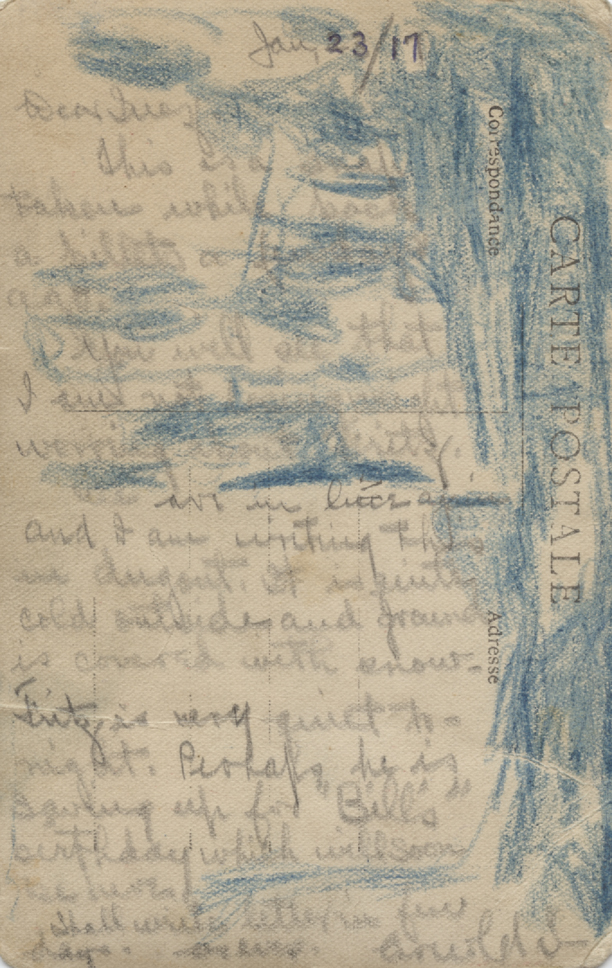 Jan, 23/17
Dear Inez,
This is a snap
taken while back
a billets
You will see that
I am not
worrying about
We are in line again
and I am writing this
in dugout. It is quite
cold outside and ground
is covered with snow.
Fritz is very quiet to-
night. Perhaps he is
saving up for "Bill's"
birthday which will soon
be here.
Shall write letter in few
days.
Arnold
CARTE POSTALE
Correspondance
Adresse